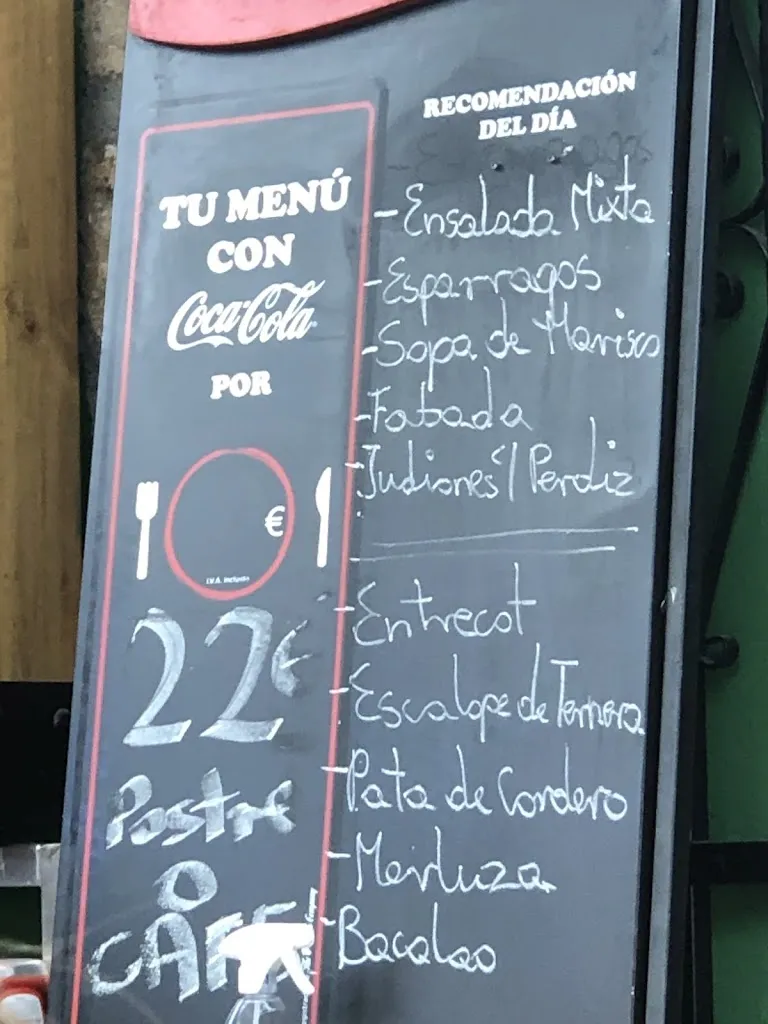 TU MENÚ
CON
Coca-Cola
POR
€
I.V.A. incluido
22€
Postre
O
CAFE
RECOMENDACIÓN
DEL DÍA
-Ensalada Mixta
-Esparragos
-Sopa de Marisco
-Fabada
-Judiones / Perdiz
-Entrecot
-Escalope de Ternera
-Pata de Cordero
-Merluza
-Bacalao